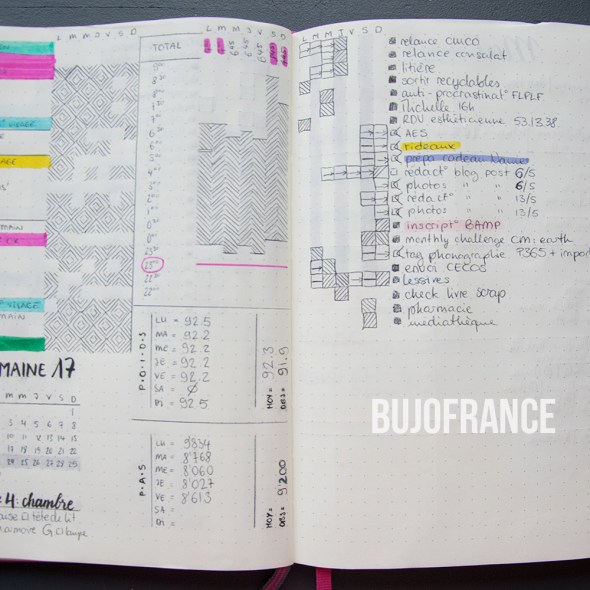 L M M J V S D
TOTAL
L M M J V S D
6:45
6:45
6:45
9ʰ⁰
8ʰ⁰
7ʰ⁰
6ʰ⁰
6ʰ⁰
5ʰ⁰
4ʰ⁰
3ʰ⁰
2ʰ⁰
1ʰ⁰
0ʰ⁰
23ʰ⁰
22ʰ⁰
MAINE 17
M M J V S D
1
3 4 5 6 7 8
10 11 12 13 14 15
17 18 19 20 21 22
24 25 26 27 28 29
4: chambre
P.O.I.D.S
LU = 92.5
MA = 92.2
ME = 92.2
JE = 92.2
VE = 92.2
SA = Ø
DI = 92.5
MOY = 92.3
OBJ = 91.9
P.A.S
LU = 9'834
MA = 8'768
ME = 8'060
JE = 8'027
VE = 8'613
SA =
DI =
MOY =
OBJ = 9'200
L M M J V S D
relance CMCO
relance consulat
litière
sortir recyclables
anti-procrastinat° FLPLF
Michelle 16h
RDV esthéticienne 53.13.38.
AES
rideaux
prépa cadeau
redact° blog post 6/5
photos " " 6/5
redact° " " 13/5
photos " " 13/5
inscript° BAMP
monthly challenge CM: earth
tag phonographie P365 + import
envoi CECOS
lessives
check livre scrap
pharmacie
médiathèque
BUJOFRANCE